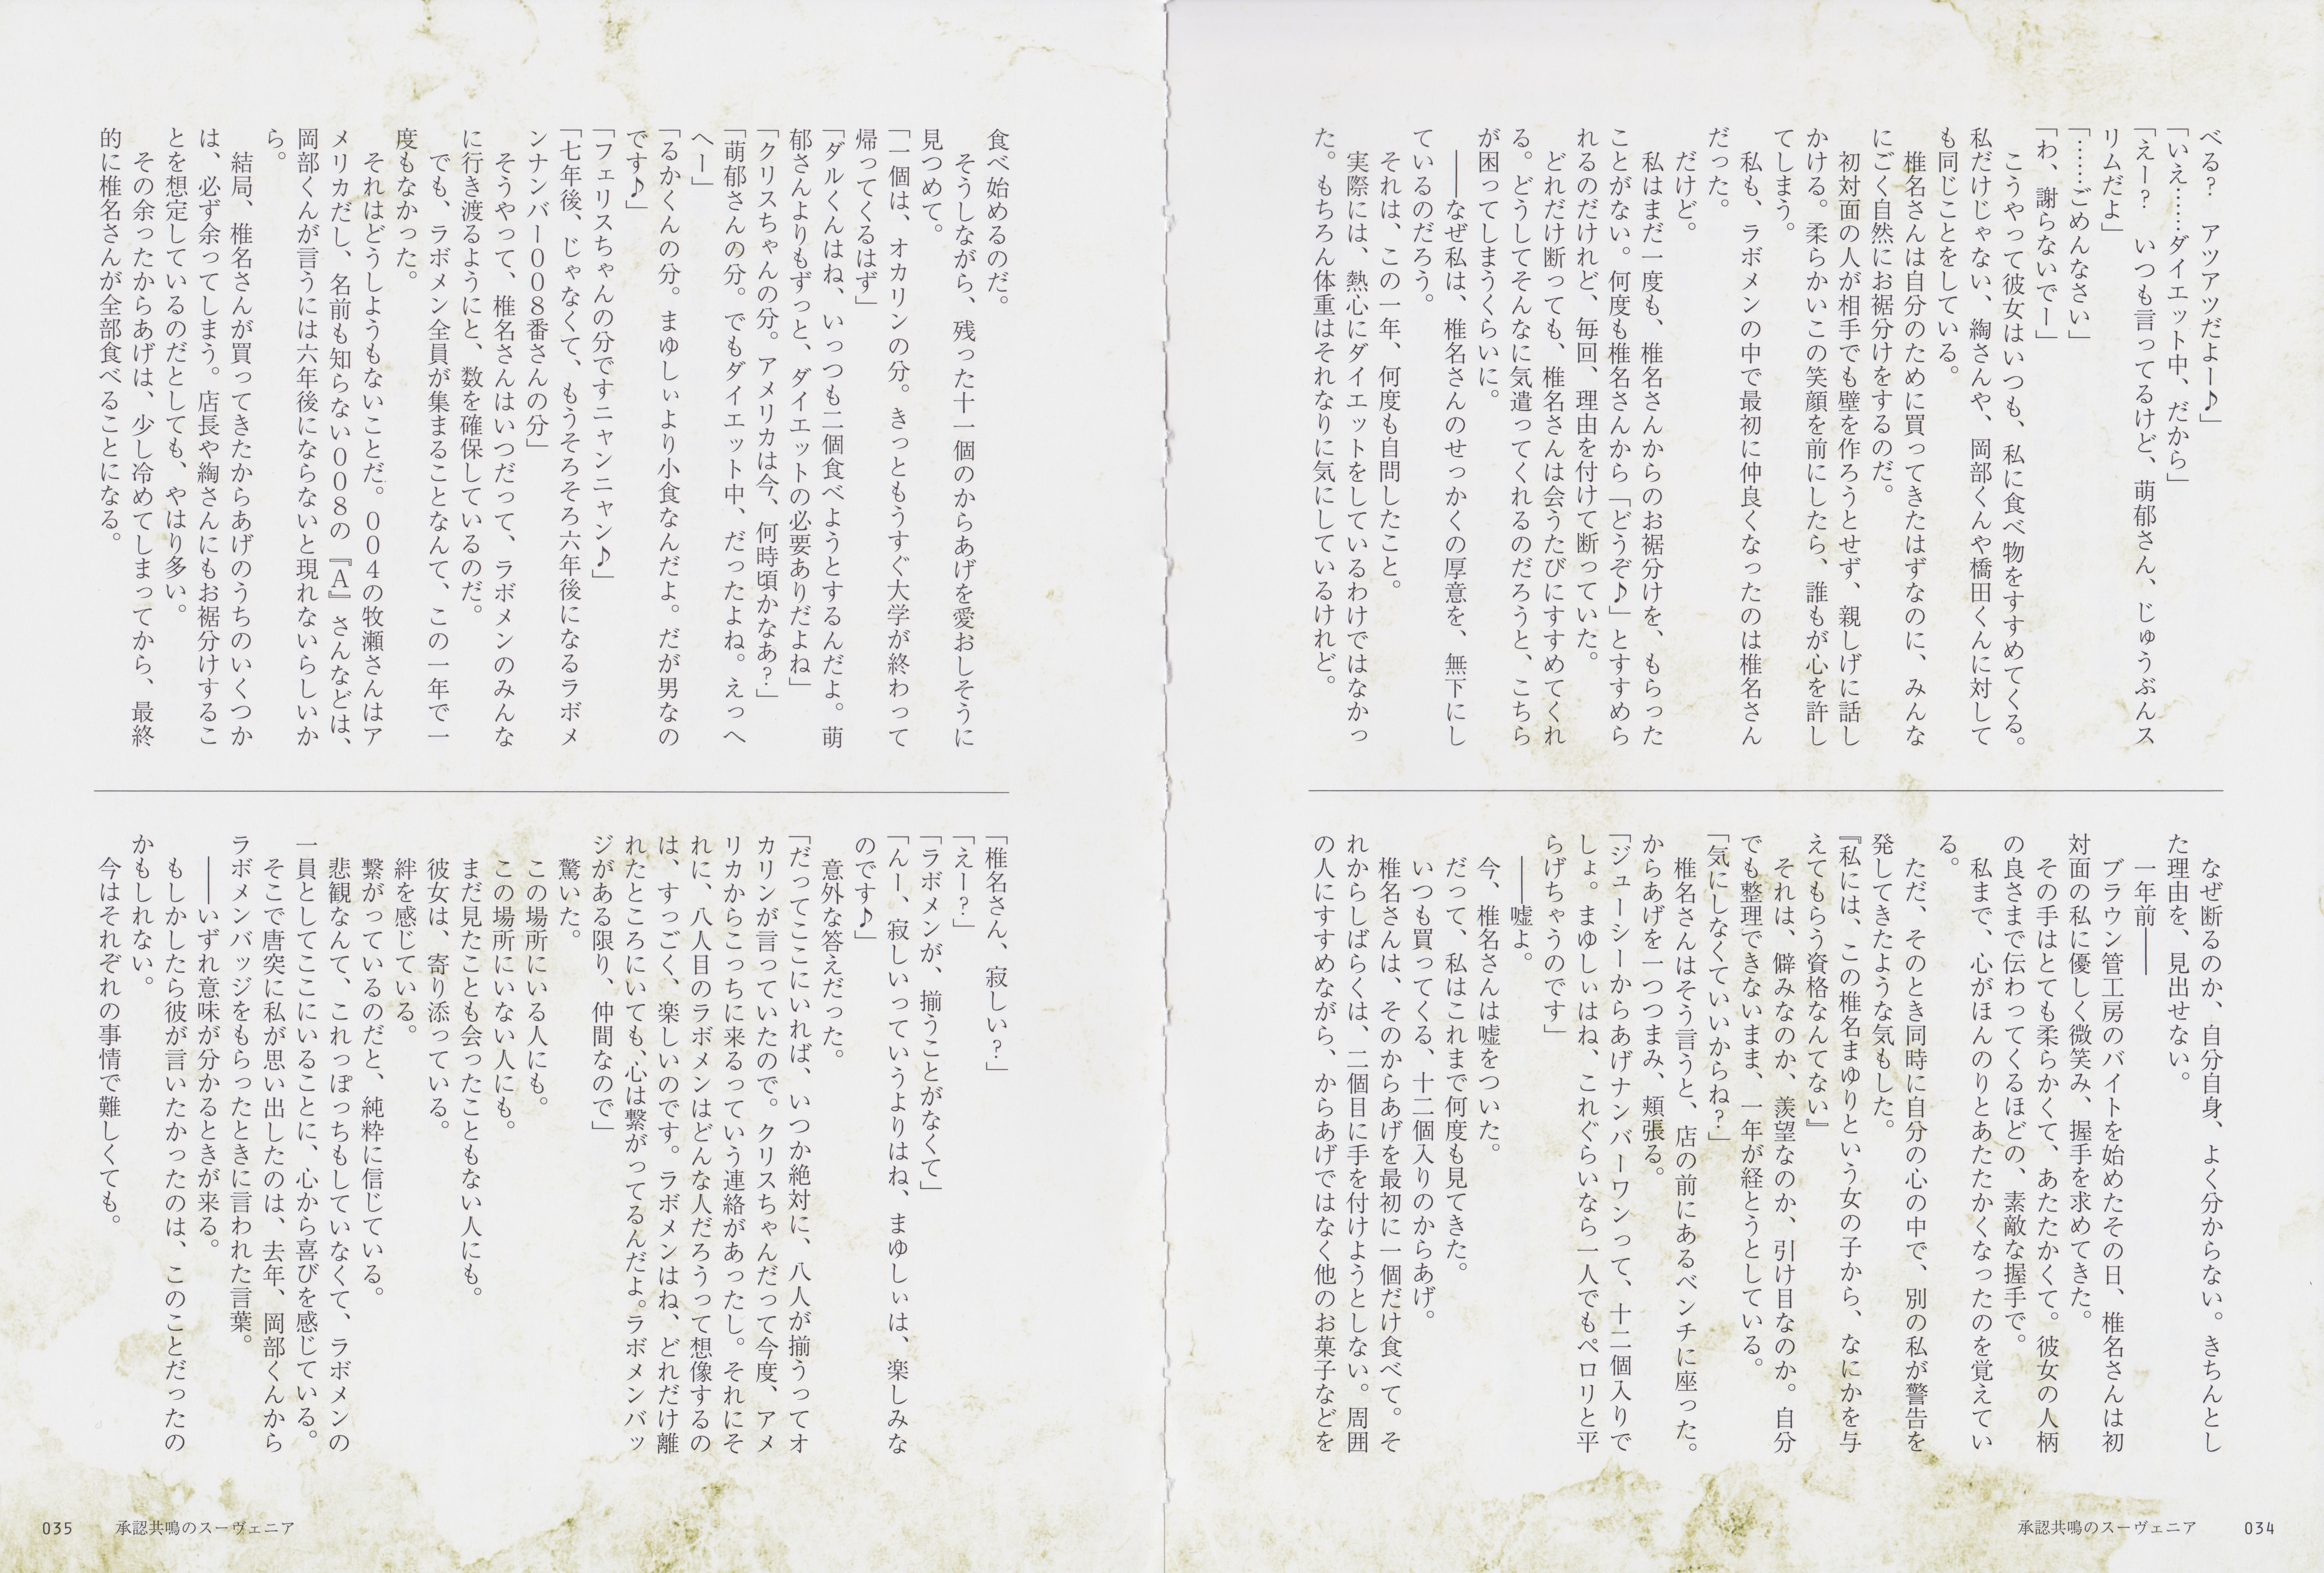 べる?　アツアツだよー♪」
「いえ……ダイエット中、だから」
「えー?　いつも言ってるけど、萌郁さん、じゅうぶんス
リムだよ」
「……ごめんなさい」
「わ、謝らないでー」
　こうやって彼女はいつも、私に食べ物をすすめてくる。
私だけじゃない、綯さんや、岡部くんや橋田くんに対して
も同じことをしている。
　椎名さんは自分のために買ってきたはずなのに、みんな
にごく自然にお裾分けをするのだ。
　初対面の人が相手でも壁を作ろうとせず、親しげに話し
かける。柔らかいこの笑顔を前にしたら、誰もが心を許し
てしまう。
　私も、ラボメンの中で最初に仲良くなったのは椎名さん
だった。
　だけど。
　私はまだ一度も、椎名さんからのお裾分けを、もらった
ことがない。何度も椎名さんから「どうぞ♪」とすすめら
れるのだけれど、毎回、理由を付けて断っていた。
　どれだけ断っても、椎名さんは会うたびにすすめてくれ
る。どうしてそんなに気遣ってくれるのだろうと、こちら
が困ってしまうくらいに。
　――なぜ私は、椎名さんのせっかくの厚意を、無下にし
ているのだろう。
　それは、この一年、何度も自問したこと。
　実際には、熱心にダイエットをしているわけではなかっ
た。もちろん体重はそれなりに気にしているけれど。
　なぜ断るのか、自分自身、よく分からない。きちんとし
た理由を、見出せない。
　一年前――
　ブラウン管工房のバイトを始めたその日、椎名さんは初
対面の私に優しく微笑み、握手を求めてきた。
　その手はとても柔らかくて、あたたかくて。彼女の人柄
の良さまで伝わってくるほどの、素敵な握手で。
　私まで、心がほんのりとあたたかくなったのを覚えてい
る。
　ただ、そのとき同時に自分の心の中で、別の私が警告を
発してきたような気もした。
『私には、この椎名まゆりという女の子から、なにかを与
えてもらう資格なんてない』
　それは、僻みなのか、羨望なのか、引け目なのか。自分
でも整理できないまま、一年が経とうとしている。
「気にしなくていいからね?」
　椎名さんはそう言うと、店の前にあるベンチに座った。
からあげを一つつまみ、頬張る。
「ジューシーからあげナンバーワンって、十二個入りで
しょ。まゆしぃはね、これぐらいなら一人でもペロリと平
らげちゃうのです」
　――嘘よ。
　今、椎名さんは嘘をついた。
　だって、私はこれまで何度も見てきた。
　いつも買ってくる、十二個入りのからあげ。
　椎名さんは、そのからあげを最初に一個だけ食べて。そ
れからしばらくは、二個目に手を付けようとしない。周囲
の人にすすめながら、からあげではなく他のお菓子などを
承認共鳴のスーヴェニア　034
食べ始めるのだ。
　そうしながら、残った十一個のからあげを愛おしそうに
見つめて。
「一個は、オカリンの分。きっともうすぐ大学が終わって
帰ってくるはず」
「ダルくんはね、いっつも二個食べようとするんだよ。萌
郁さんよりもずっと、ダイエットの必要ありだよね」
「クリスちゃんの分。アメリカは今、何時頃かなあ?」
「萌郁さんの分。でもダイエット中、だったよね。えっへ
へー」
「るかくんの分。まゆしぃより小食なんだよ。だが男なの
です♪」
「フェリスちゃんの分ですニャンニャン♪」
「七年後、じゃなくて、もうそろそろ六年後になるラボメ
ンナンバー008番さんの分」
　そうやって、椎名さんはいつだって、ラボメンのみんな
に行き渡るようにと、数を確保しているのだ。
　でも、ラボメン全員が集まることなんて、この一年で一
度もなかった。
　それはどうしようもないことだ。004の牧瀬さんはア
メリカだし、名前も知らない008の『A』さんなどは、
岡部くんが言うには六年後にならないと現れないらしいか
ら。
　結局、椎名さんが買ってきたからあげのうちのいくつか
は、必ず余ってしまう。店長や綯さんにもお裾分けするこ
とを想定しているのだとしても、やはり多い。
　その余ったからあげは、少し冷めてしまってから、最終
的に椎名さんが全部食べることになる。
「椎名さん、寂しい?」
「えー?」
「ラボメンが、揃うことがなくて」
「んー、寂しいっていうよりはね、まゆしぃは、楽しみな
のです♪」
　意外な答えだった。
「だってここにいれば、いつか絶対に、八人が揃うってオ
カリンが言っていたので。クリスちゃんだって今度、アメ
リカからこっちに来るっていう連絡があったし。それにそ
れに、八人目のラボメンはどんな人だろうって想像するの
は、すっごく、楽しいのです。ラボメンはね、どれだけ離
れたところにいても、心は繋がってるんだよ。ラボメンバッ
ジがある限り、仲間なので」
　驚いた。
　この場所にいる人にも。
　この場所にいない人にも。
　まだ見たことも会ったこともない人にも。
　彼女は、寄り添っている。
　絆を感じている。
　繋がっているのだと、純粋に信じている。
　悲観なんて、これっぽっちもしていなくて、ラボメンの
一員としてここにいることに、心から喜びを感じている。
　そこで唐突に私が思い出したのは、去年、岡部くんから
ラボメンバッジをもらったときに言われた言葉。
　――いずれ意味が分かるときが来る。
　もしかしたら彼が言いたかったのは、このことだったの
かもしれない。
　今はそれぞれの事情で難しくても。
035　承認共鳴のスーヴェニア